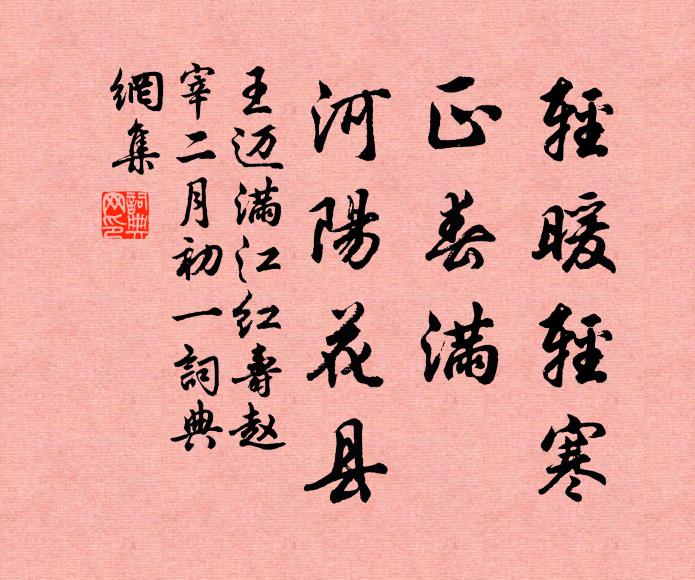 輕暖輕寒
正春滿
河陽花县
王迈滿江红壽赵
宰二月初一詞典
網集
詞典
网印